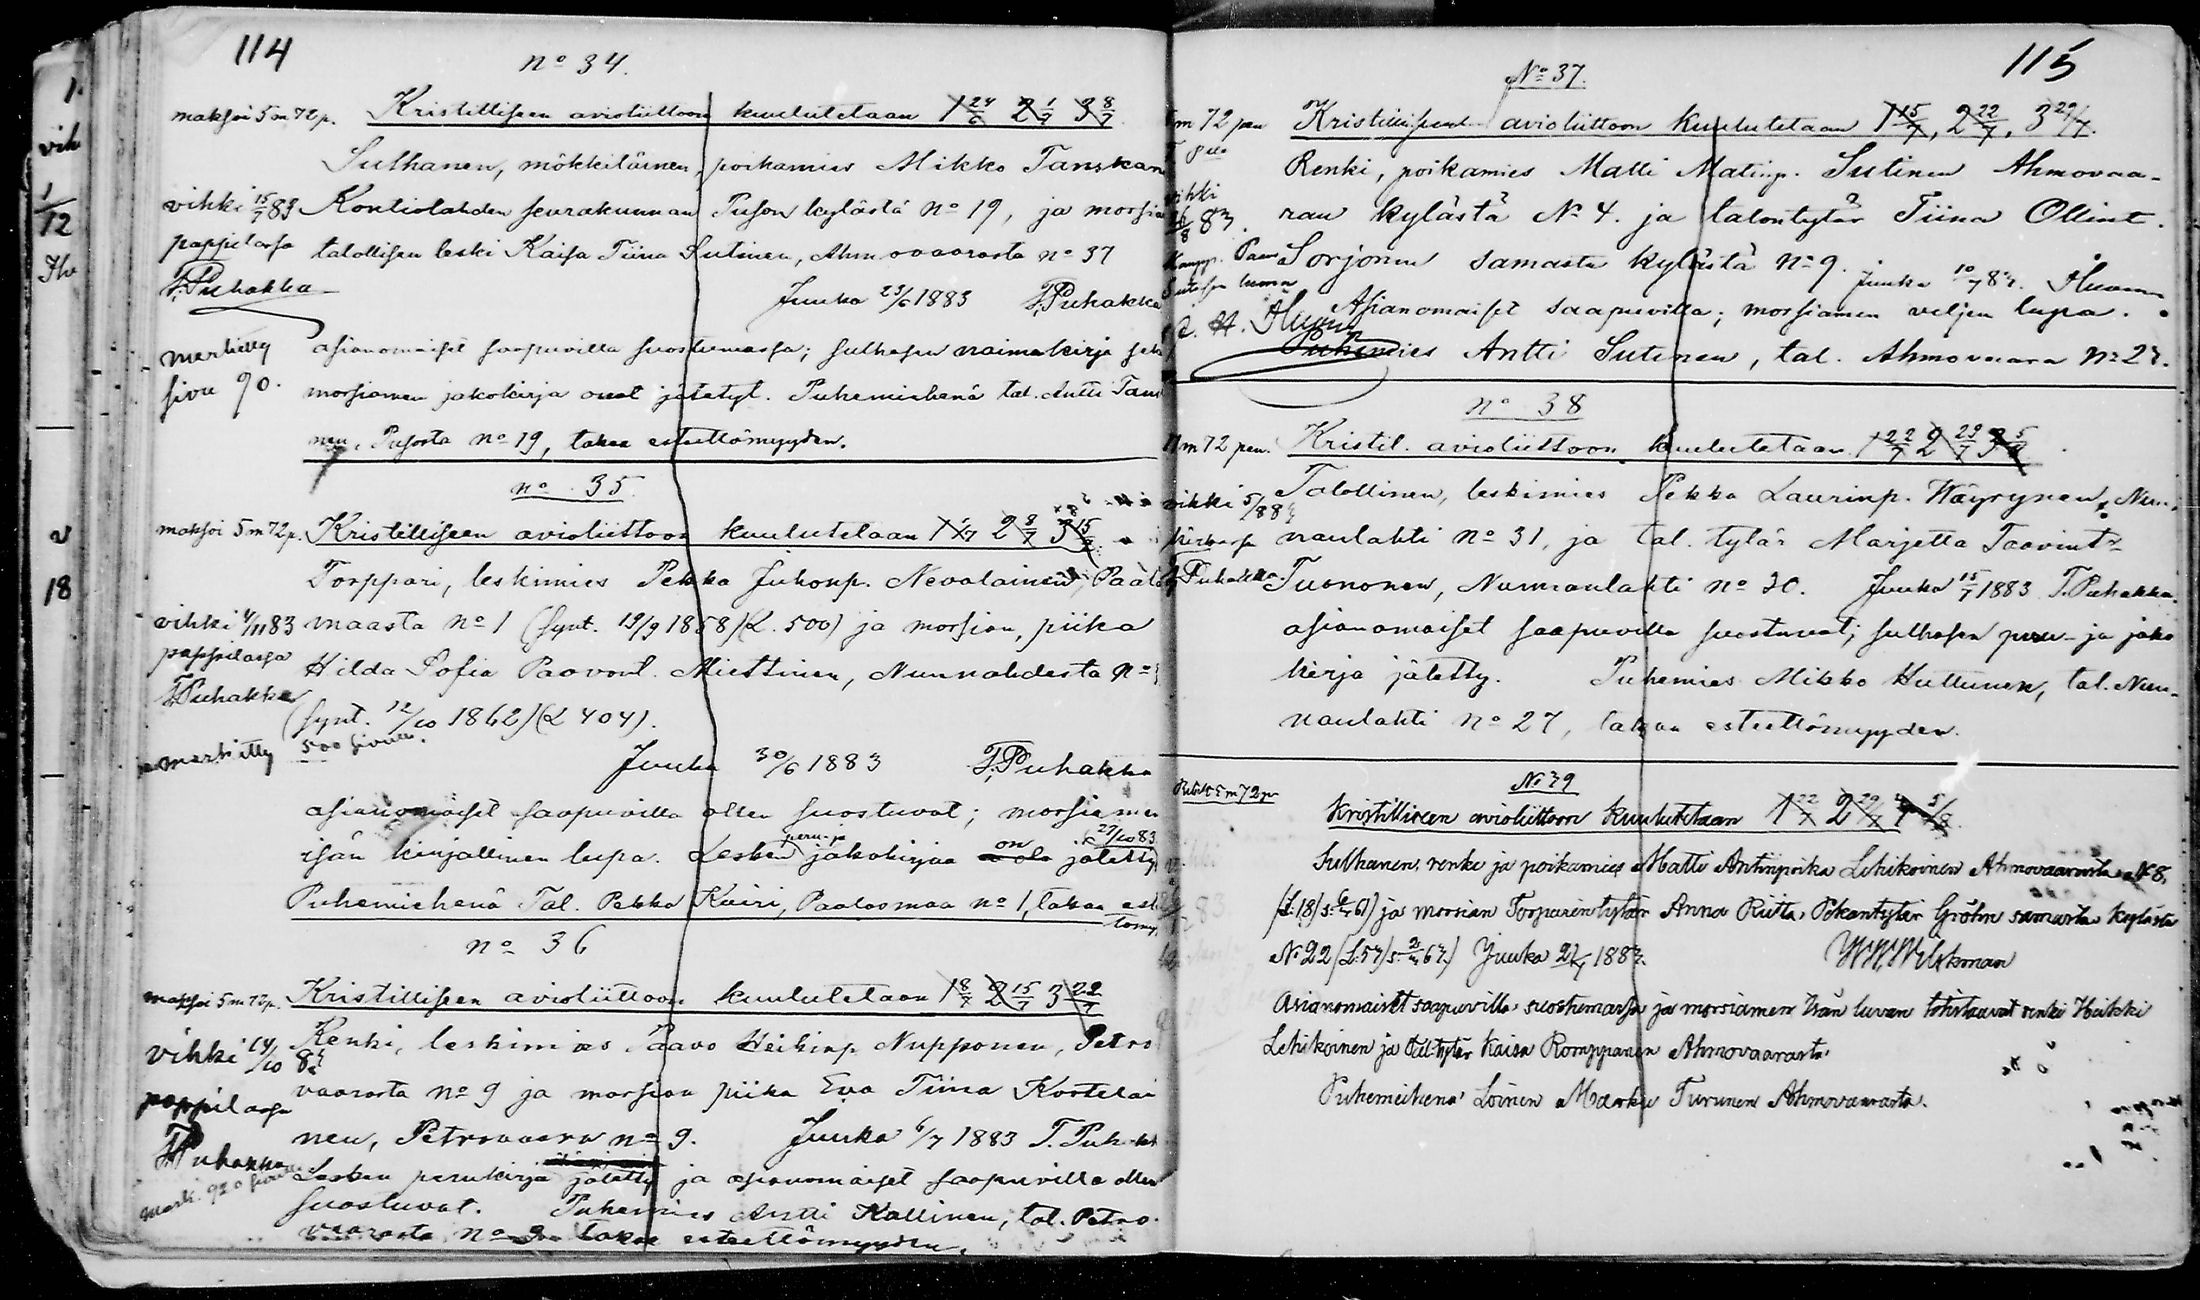 114
nº 34.
maksoi 5 m 72 p. Kristilliseen avioliittoon kuulutetaan 1 24/6 2 1/7 3 8/7
Sulhanen, mökkiläinen, poikamies Mikko Tanskan
vihki 15/7 83 Kontiolahden seurakunnan Puson kylästä nº 19, ja morsia
pappilassa talollisen leski Kaisa Tiina Sutinen, Ahmovaarasta nº 37
T. Puhakka Juuka 23/6 1883 T. Puhakka
merkitty asianomaiset saapuvilla suostumassa; sulhasen naimakirja sekä
sivu 90. morsiamen jakokirja ovat jätetyt. Puhemiehenä tal. Antti Tans
nen, Pusosta nº 19, takaa esteettömyyden.
nº 35.
maksoi 5 m 72 p. Kristilliseen avioliittoon kuulutetaan 1 1/7 2 8/7 3 15/7
Torppari, leskimies Pekka Juhonp. Nevalainen, Paal
vihki 4/11 83 maasta nº 1 (synt. 19/9 1858)(L. 500) ja morsian, piika
pappilassa Hilda Sofia Paavont. Miettinen, Nunnalahdesta nº
T. Puhakka (synt. 12/10 1862)(L 404).
merkitty 500 sivulle.
Juuka 30/6 1883 T. Puhakka
asianomaiset saapuvilla ollen suostuvat; morsiamen
isän kirjallinen lupa. Lesken peru- ja jakokirjaa on jätetty 27/10 83
Puhemiehenä Tal. Pekka Kairi, Paalasmaa nº 1, takaa est
tömy
nº 36
maksoi 5 m 72 p. Kristilliseen avioliittoon kuulutetaan 1 8/7 2 15/7 3 22/7
vihki 14/10 83 Renki, leskimies Paavo Heikinp Nupponen, Petro
vaarasta nº 9 ja morsian piika Eva Tiina Kortelai
pappilassa nen, Petrovaara nº 9. Juuka 6/7 1883 T. Puhakk
T. Puhakka Lesken perukirja jätetty ja asianomaiset saapuvilla ollen
merk. 920 sivulle suostuvat. Puhemies Antti Kallinen, tal. Petro-
vaarasta nº 9 takaa esteettömyyden.
115
Nº 37.
m 72 pen Kristilliseen avioliittoon kuulutetaan 1 15/7, 2 22/7, 3 29/7.
Renki, poikamies Matti Matinp. Sutinen Ahmovaa-
vihki 83. ran kylästä Nº 4. ja talontytär Tiina Ollint.
Sorjonen samasta kylästä nº 9. Juuka 10/7 83.
Asianomaiset saapuvilla; morsiamen veljen lupa.
Puhemies Antti Sutinen, tal. Ahmovaara Nº 27.
nº 38
m 72 pen. Kristil. avioliittoon kuulutetaan 1 22/7 2 29/7 3 5/8
vihki 5/8 83 Talollinen, leskimies Pekka Laurinp. Wäyrynen, Nun-
kirkossa nanlahti nº 31, ja tal. tytär Marjetta Taavint:
T. Puhakka. Tuononen, Nunnanlahti nº 20. Juuka 15/7 1883 T. Puhakka.
asianomaiset saapuvilla suostuvat; sulhasen peru- ja jako
kirja jätetty. Puhemies Mikko Huttunen, tal. Nun-
nanlahti nº 27, takaa esteettömyyden.
Nº 39
5 m 72 p Kristilliseen avioliittoon kuulutetaan 1 22/7 2 29/7 5/8.
Sulhanen, renki ja poikamies Matti Antinpoika Lehikoinen Ahmovaarasta Nº 8.
(L. 18) ja morsian Torparin tytär Anna Riitta Pekantytär Gröhn samasta kylästä
Nº 22 Juuka 21/7 1883.
Asianomaiset saapuvilla suostumassa ja morsiamen isän luvan todistavat renki Heikki
Lehikoinen ja tal. tytär Kaisa Romppanen Ahmovaarasta.
Puhemiehenä Loinen Markku Turunen Ahmovaarasta.